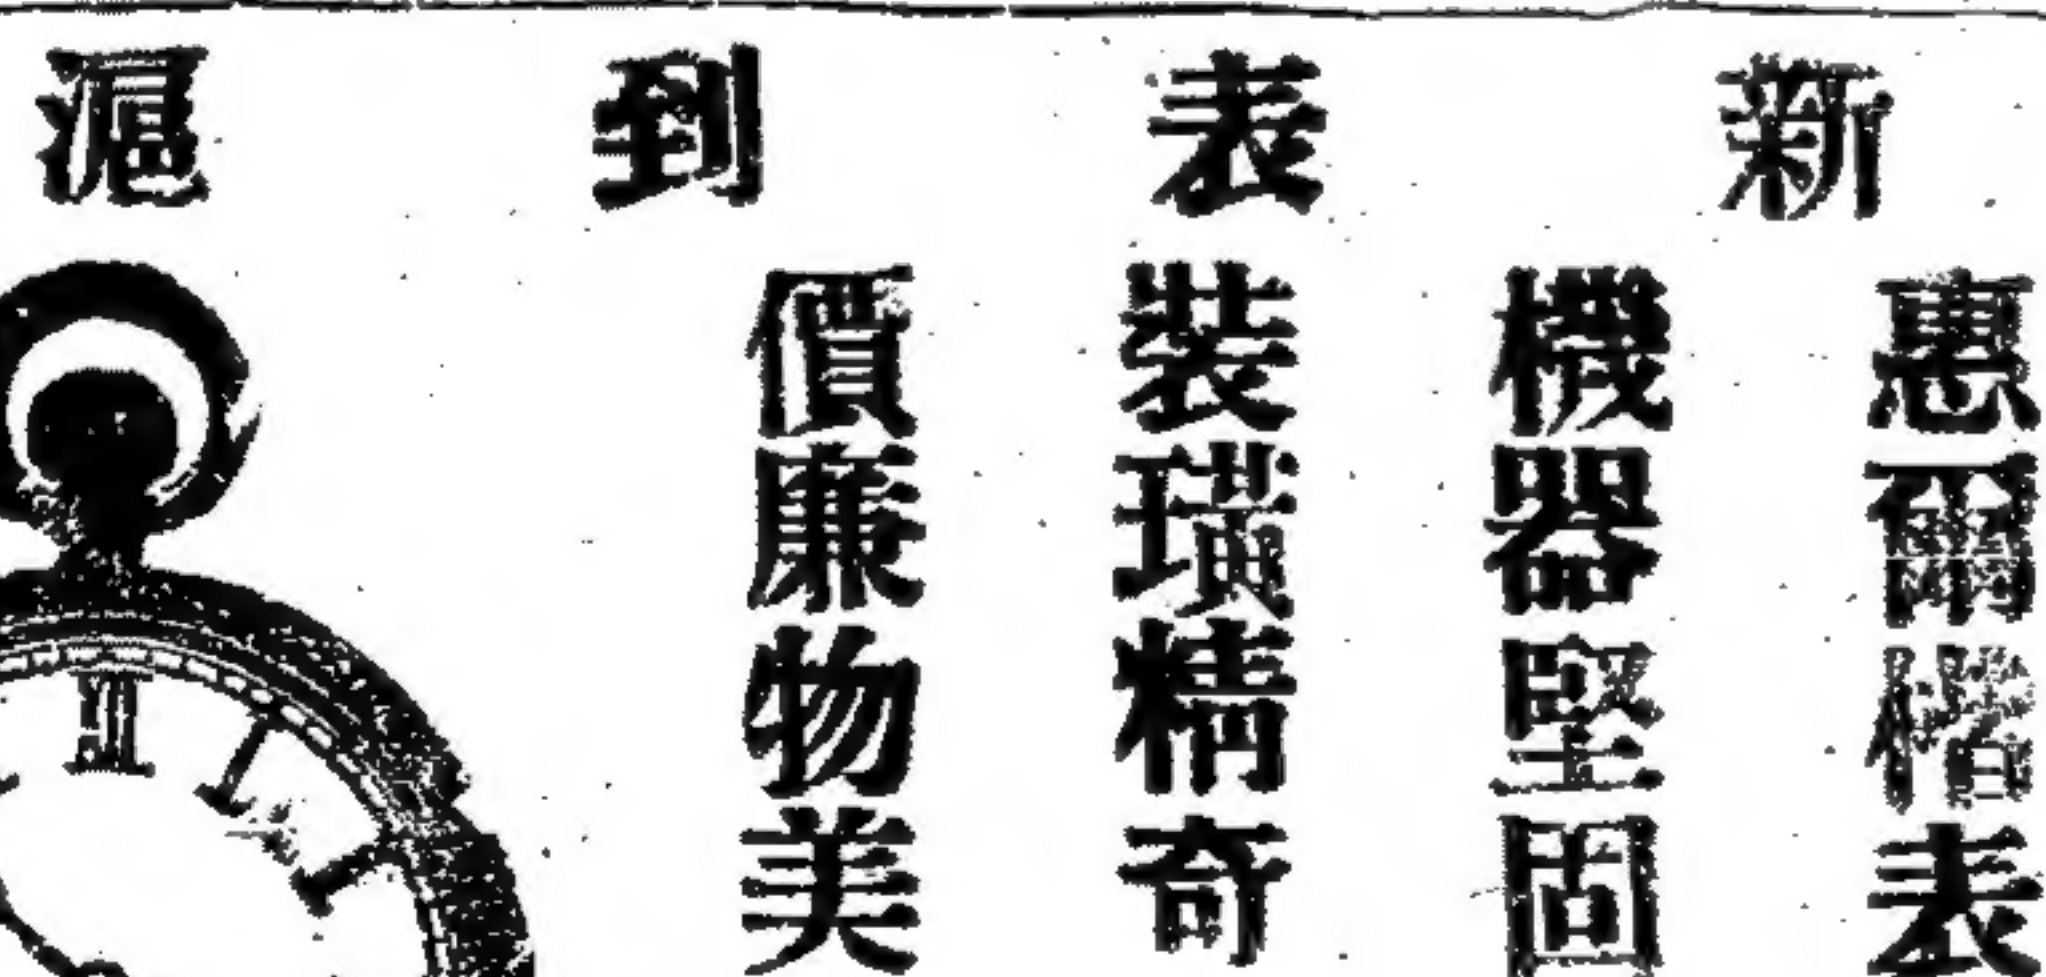 新表到滬
惠爾楷表
機器堅固
裝璜精奇
價廉物美
XII
I